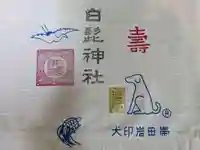 白髭神社
壽
犬印岩田帯